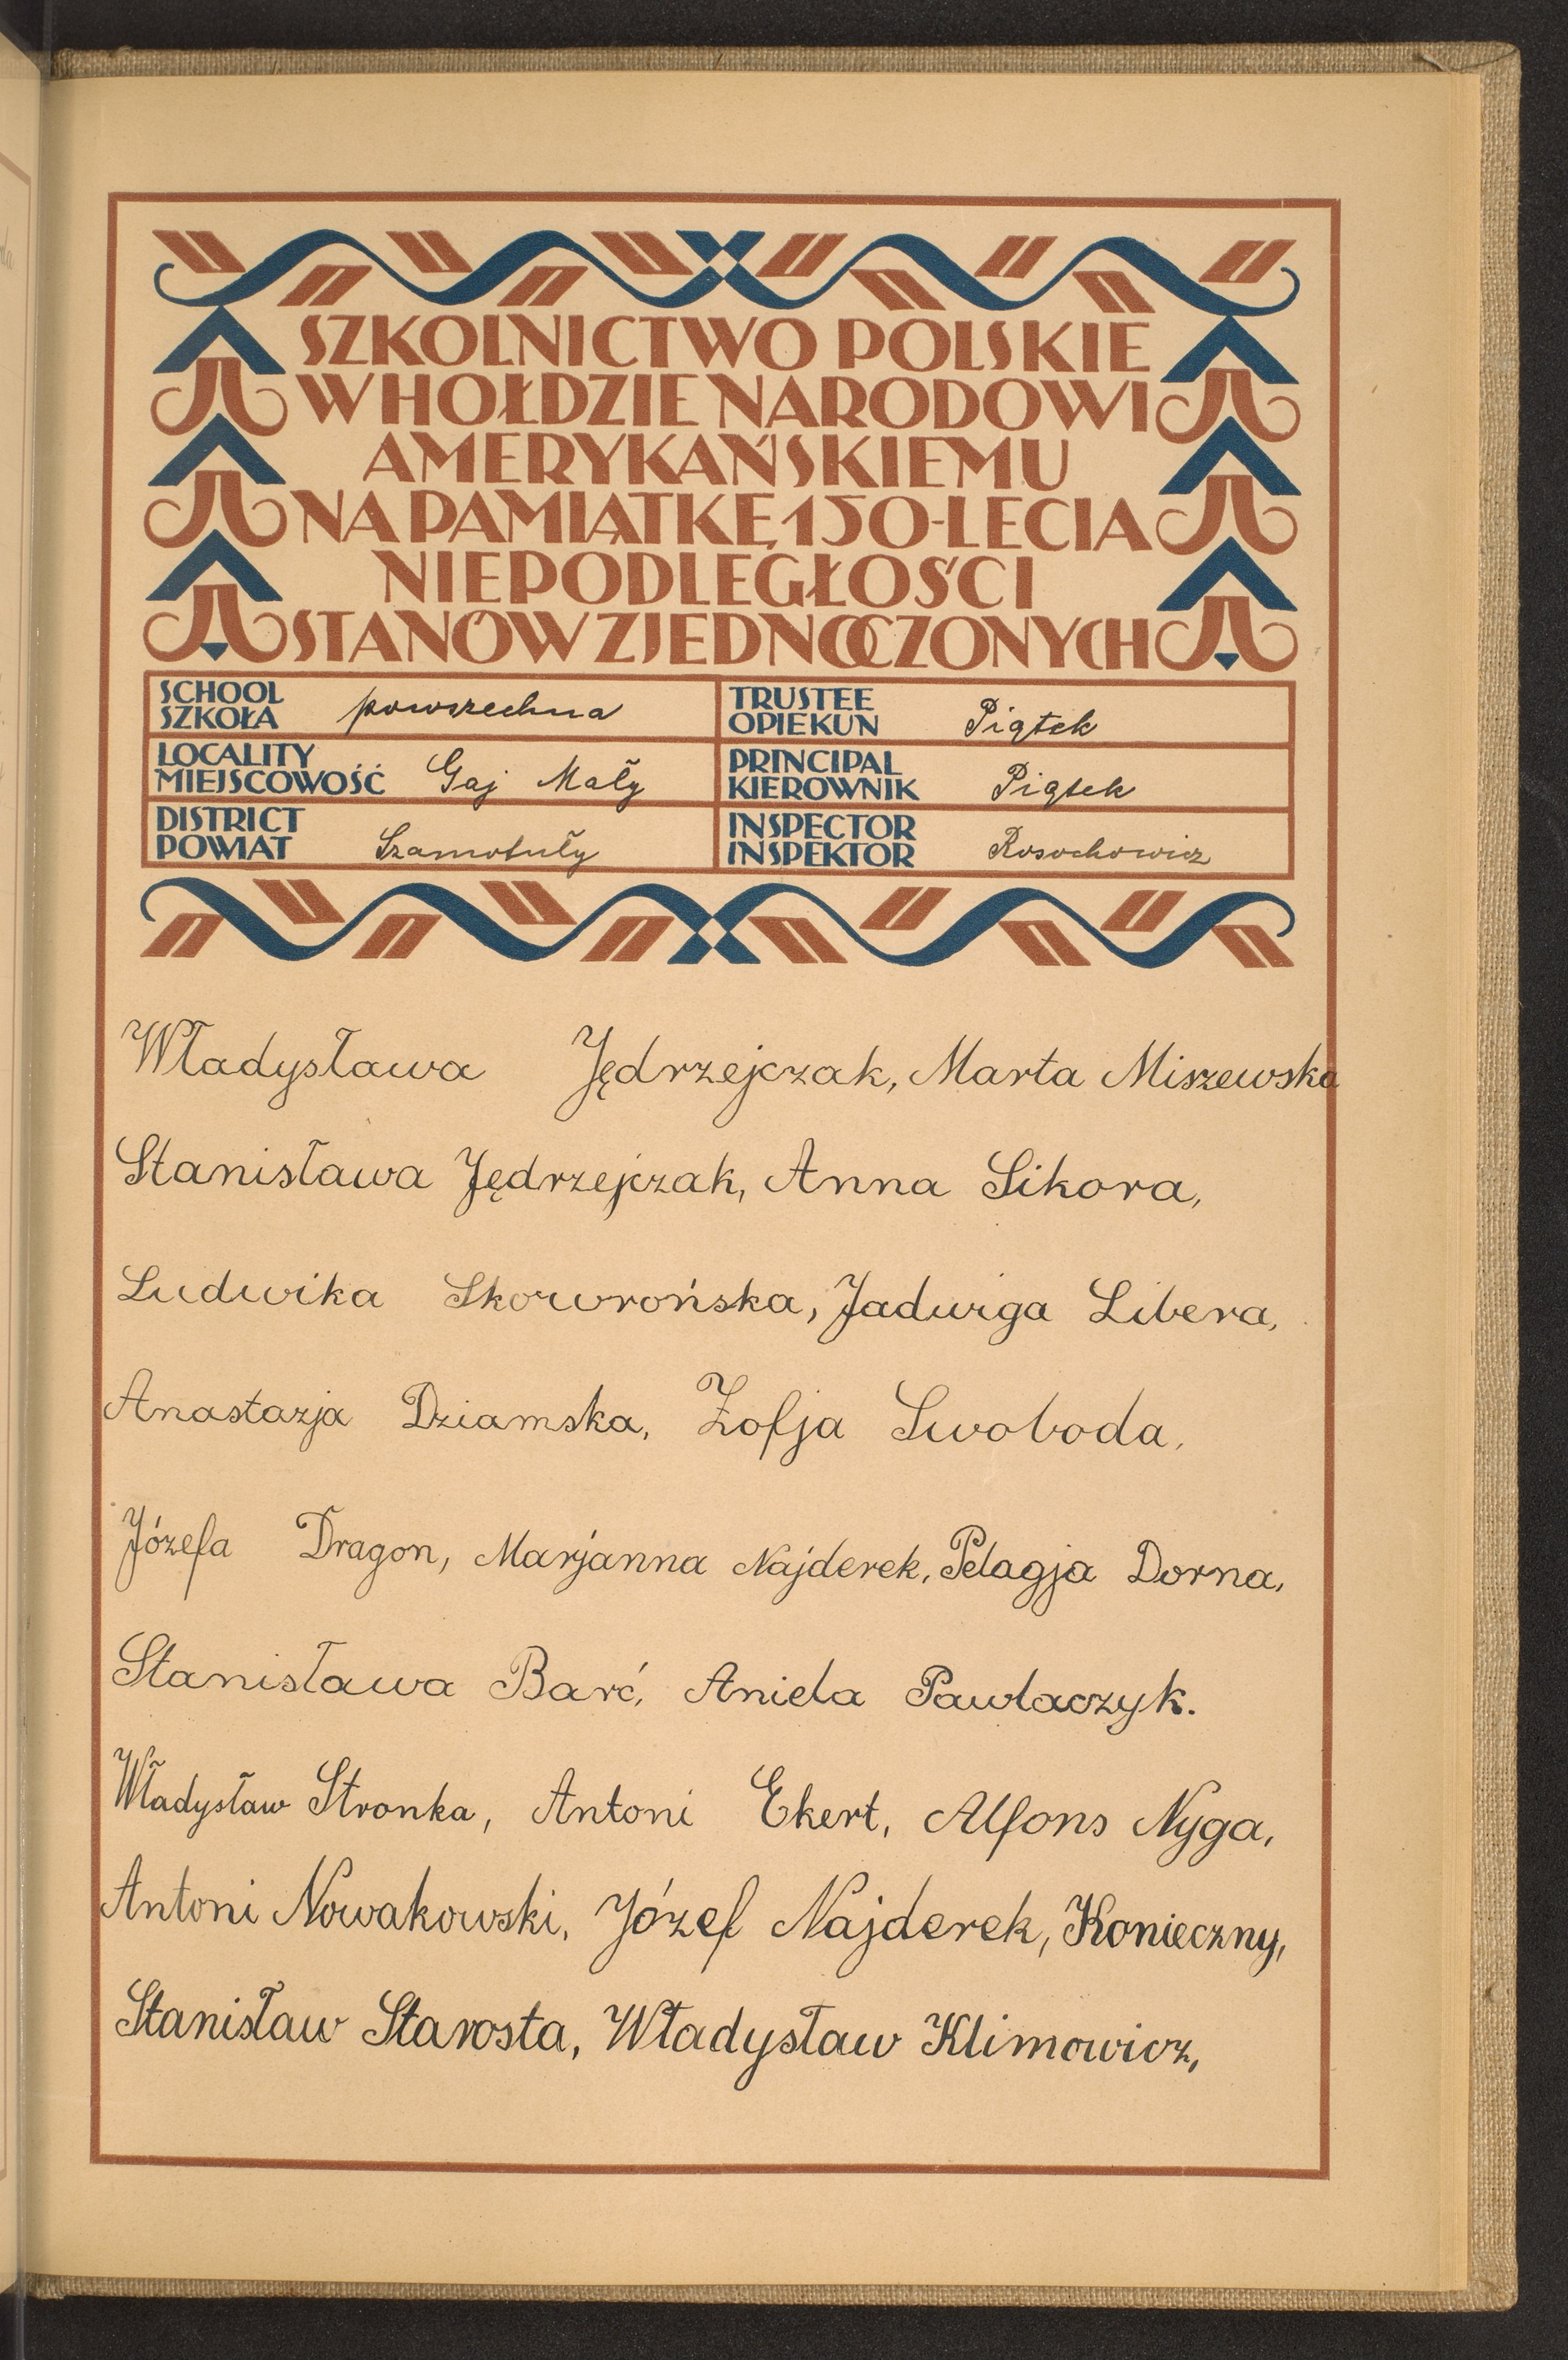 SZKOLNICTWO POLSKIE
W HOŁDZIE NARODOWI
AMERYKAŃSKIEMU
NA PAMIĄTKĘ 150-LECIA
NIEPODLEGŁOŚCI
STANÓW ZJEDNOCZONYCH
SCHOOL
SZKOŁA powszechna
TRUSTEE
OPIEKUN Piątek
LOCALITY
MIEJSCOWOŚĆ Gaj Mały
PRINCIPAL
KIEROWNIK Piątek
DISTRICT
POWIAT Szamotuły
INSPECTOR
INSPEKTOR Rosochowicz
Władysława Jędrzejczak, Marta Miszewska
Stanisława Jędrzejczak, Anna Sikora,
Ludwika Skowrońska, Jadwiga Libera,
Anastazja Dziamska, Zofja Swoboda,
Józefa Dragon, Marjanna Najderek, Pelagja Dorna,
Stanisława Barć, Aniela Pawlaczyk.
Władysław Stronka, Antoni Ekert, Alfons Nyga,
Antoni Nowakowski, Józef Najderek, Konieczny,
Stanisław Starosta, Władysław Klimowicz,